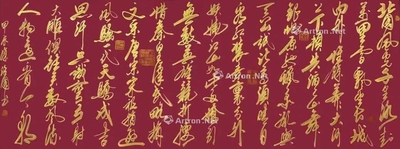 北国风光千里冰封
万里雪飘望长城
内外惟余莽莽大河
上下顿失滔滔山舞
银蛇原驰蜡象欲与
天公试比高须晴日
看红装素裹分外
妖娆江山如此多娇引
无数英雄竞折腰
惜秦皇汉武略输
文采唐宗宋祖稍逊
风骚一代天骄成吉
思汗只识弯弓射
大雕俱往矣数风流
人物还看今朝